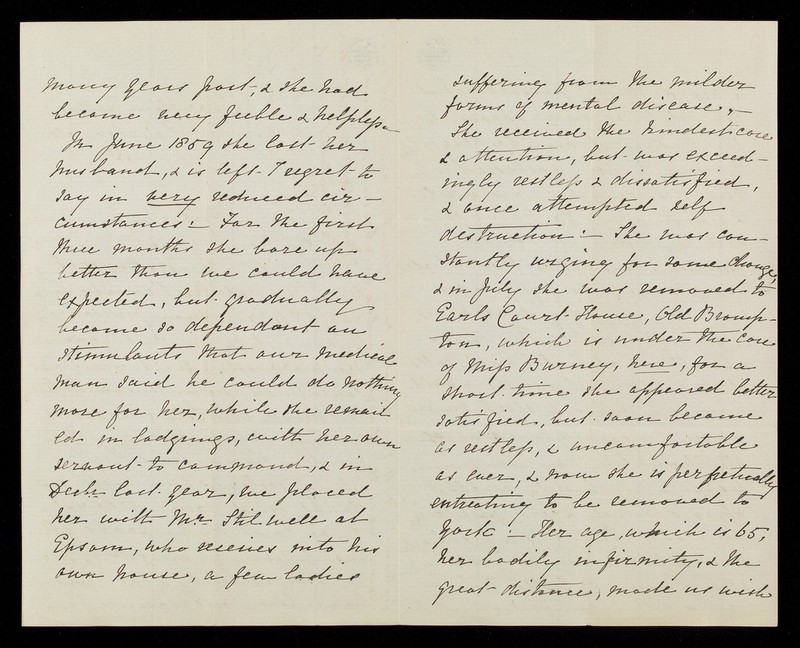 many years past, & she had
become very feeble & helpless.
In June 1859 she lost her
husband, & is left I regret to
say in very reduced cir-
cumstances:- For the first
three months she bore up
better than we could have
expected, but gradually
became so dependant on
stimulants that our medical
man said he could do nothing
more for her, while she remain
ed in lodgings, with her own
servant to command, & in
Decbr. last year, we placed
her with Mr. Stilwell at
Epsom, who receives into his
own house, a few ladies
suffering from the milder
forms of mental disease,-
She received the kindest care
& attention, but was exceed-
ingly restless & dissatisfied,
& once attempted self
destruction:- She was con-
stantly urging for some change,
& in July she was removed to
Earls Court House, Old Bromp-
ton, which is under the care
of Miss Burney, here, for a
short time she appeared better
satisfied, but soon became
as restless, & uncomfortable
as ever, & now she is perpetually
entreating to be removed to
York - Her age, which is 65,
her bodily infirmity, & the
great distance, made us wish